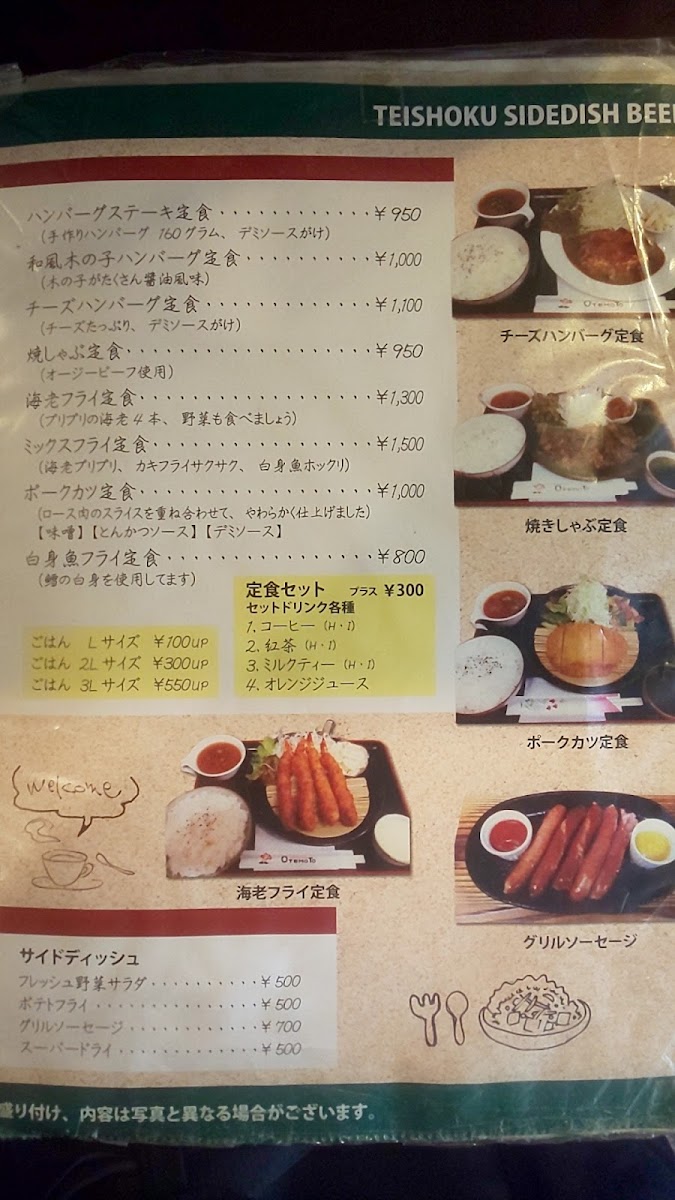 TEISHOKU SIDEDISH
ハンバーグステーキ定食・・・・・・・・・・・・・¥950
(手作りハンバーグ 160グラム、デミソースがけ)
和風木の子ハンバーグ定食・・・・・・・・・・・¥1,000
(木の子がたくさん醤油風味)
チーズハンバーグ定食・・・・・・・・・・・・・¥1,100
(チーズたっぷり、デミソースがけ)
焼しゃぶ定食・・・・・・・・・・・・・・・・・・¥950
(オージービーフ使用)
海老フライ定食・・・・・・・・・・・・・・・・¥1,300
(プリプリの海老4本、野菜も食べましょう)
ミックスフライ定食・・・・・・・・・・・・・・・¥1,500
(海老プリプリ、カキフライサクサク、白身魚ホックリ)
ポークカツ定食・・・・・・・・・・・・・・・・¥1,000
(ロース肉のスライスを重ね合わせて、やわらかく仕上げました)
【味噌】【とんかつソース】【デミソース】
白身魚フライ定食・・・・・・・・・・・・・・・¥800
(鱈の白身を使用してます)
定食セット プラス ¥300
セットドリンク各種
1.コーヒー(H・I)
2.紅茶(H・I)
3.ミルクティー(H・I)
4.オレンジジュース
ごはん Lサイズ ¥100UP
ごはん 2Lサイズ ¥300UP
ごはん 3Lサイズ ¥550UP
OTEMOTO
チーズハンバーグ定食
OTEMOTO
焼きしゃぶ定食
ポークカツ定食
welcome
OTEMOTO
海老フライ定食
グリルソーセージ
サイドディッシュ
フレッシュ野菜サラダ・・・・・・・・・・¥500
ポテトフライ・・・・・・・・・・・・・・・¥500
グリルソーセージ・・・・・・・・・・・・¥700
スーパードライ・・・・・・・・・・・・・¥500
盛り付け、内容は写真と異なる場合がございます。